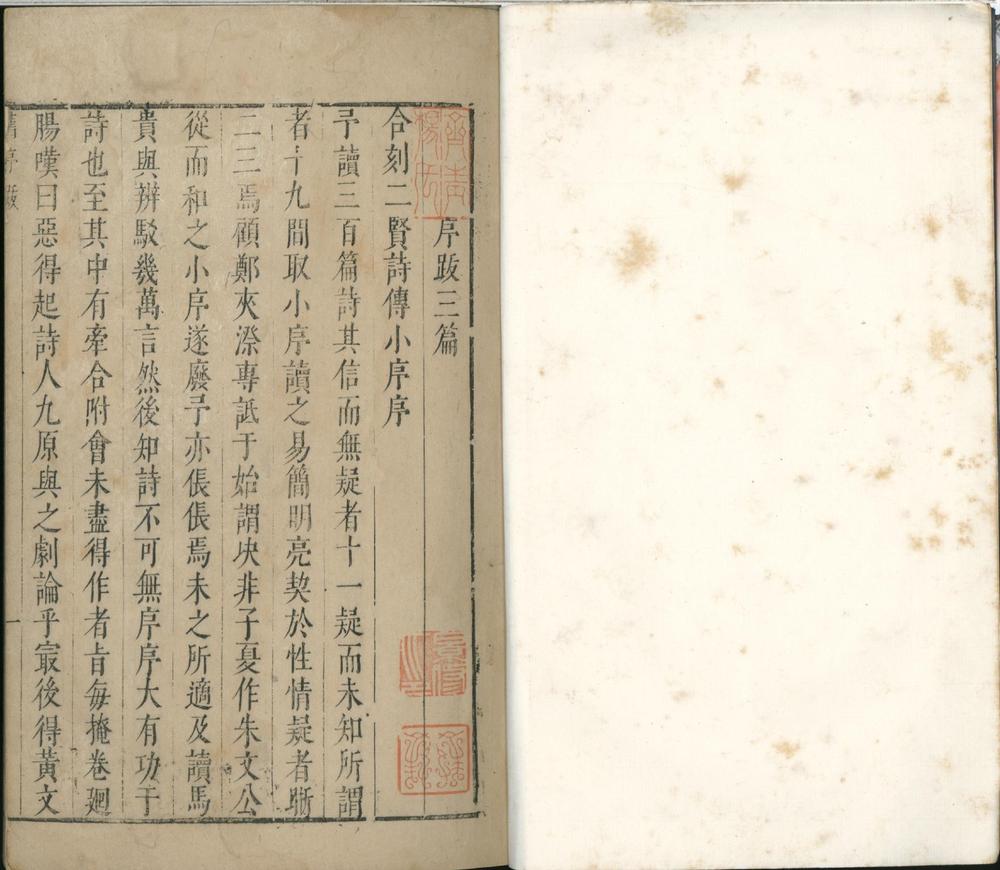 序跋三篇
合刻二賢詩傳小序序
予讀三百篇詩其信而無疑者十一疑而未知所謂
者十九間取小序讀之易簡明亮契於性情疑者晰
二三焉顧鄭夾漈專詆于始謂决非子夏作朱文公
從而和之小序遂廢予亦倀倀焉未之所適及讀馬
貴與辨駁幾萬言然後知詩不可無序序大有功于
詩也至其中有牽合附會未盡得作者旨每掩卷廻
腸嘆曰惡得起詩人九原與之劇論乎㝡後得黃文
序跋
一